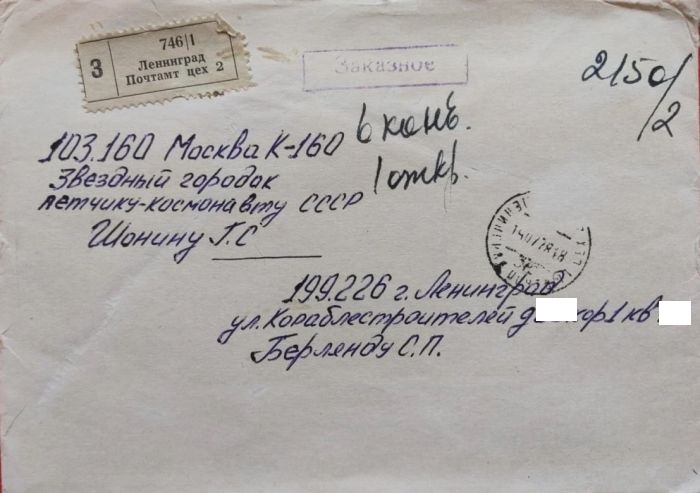 746|1
З
Ленинград
Почтамт цех 2
Заказное
2150/2
6 конв.
1 откр.
103.160 Москва К-160
Звездный городок
летчику-космонавту СССР
Шонину Г.С
199.226 г. Ленинград
ул. Кораблестроителей д кор 1 кв
Берленду С.П.